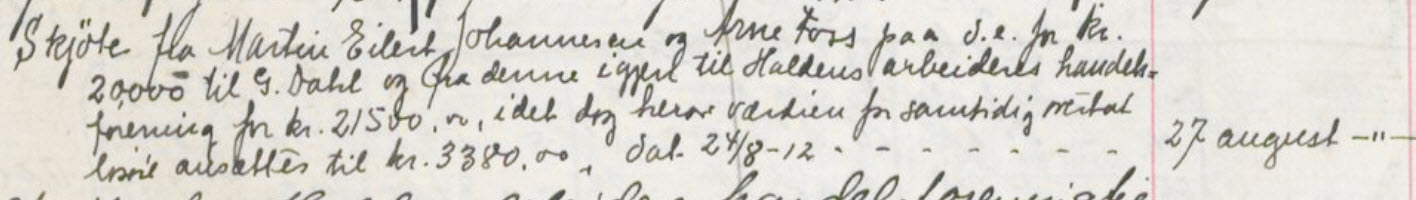 Skjöte fra Martin Eilert Johannesen og Arne Foss paa d.e. for kr.
20,000 til G. Dahl og fra denne igjen til Haldens arbeideres handels-
forening for kr. 21500.00, idet dog herav værdien for samtidig overtat
løsøre ansættes til kr. 3380.00, dat. 24/8-12 - - - - - - - 27 august -"-
handelsforening